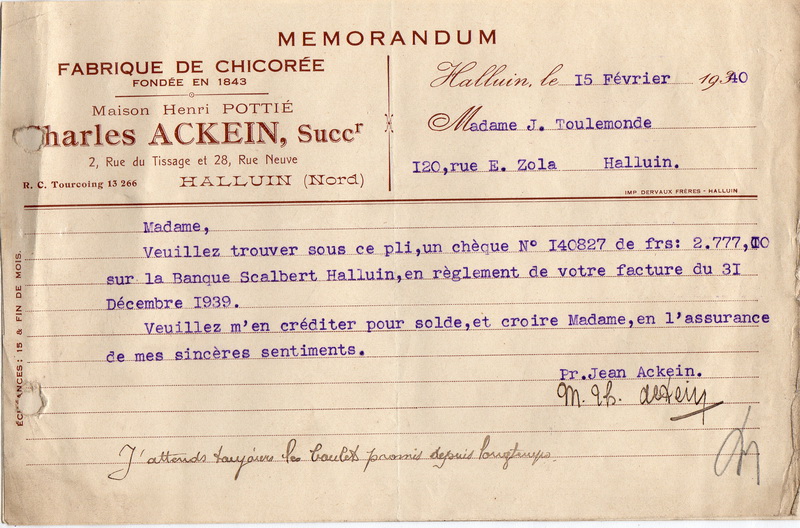 MEMORANDUM
FABRIQUE DE CHICORÉE
FONDÉE EN 1843
Maison Henri POTTIÉ
Charles ACKEIN, Succr
2, Rue du Tissage et 28, Rue Neuve
R. C. Tourcoing 13 266
HALLUIN (Nord)
Halluin, le 15 Février 1940
Madame J. Toulemonde
I20,rue E. Zola Halluin.
IMP DERVAUX FRÈRES - HALLUIN
ÉCHÉANCES : 15 & FIN DE MOIS.
Madame,
Veuillez trouver sous ce pli,un chèque N° I40827 de frs: 2.777,10
sur la Banque Scalbert Halluin,en règlement de votre facture du 3I
Décembre 1939.
Veuillez m'en créditer pour solde,et croire Madame,en l'assurance
de mes sincères sentiments.
Pr.Jean Ackein.
M. Th. Ackein
J'attends toujours les boulets promis depuis longtemps.